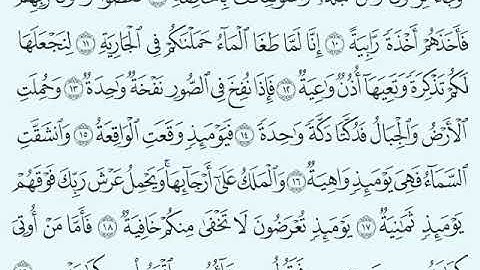 فَأَخَذَهُمْ أَخْذَةً رَّابِيَةً ١٠ إِنَّا لَمَّا طَغَا ٱلْمَآءُ حَمَلْنَٰكُمْ فِى ٱلْجَارِيَةِ ١١ لِنَجْعَلَهَا
لَكُمْ تَذْكِرَةً وَتَعِيَهَآ أُذُنٌ وَٰعِيَةٌ ١٢ فَإِذَا نُفِخَ فِى ٱلصُّورِ نَفْخَةٌ وَٰحِدَةٌ ١٣ وَحُمِلَتِ
ٱلْأَرْضُ وَٱلْجِبَالُ فَدُكَّتَا دَكَّةً وَٰحِدَةً ١٤ فَيَوْمَئِذٍ وَقَعَتِ ٱلْوَاقِعَةُ ١٥ وَٱنشَقَّتِ
ٱلسَّمَآءُ فَهِىَ يَوْمَئِذٍ وَاهِيَةٌ ١٦ وَٱلْمَلَكُ عَلَىٰٓ أَرْجَآئِهَا ۚ وَيَحْمِلُ عَرْشَ رَبِّكَ فَوْقَهُمْ
يَوْمَئِذٍ ثَمَٰنِيَةٌ ١٧ يَوْمَئِذٍ تُعْرَضُونَ لَا تَخْفَىٰ مِنكُمْ خَافِيَةٌ ١٨ فَأَمَّا مَنْ أُوتِىَ